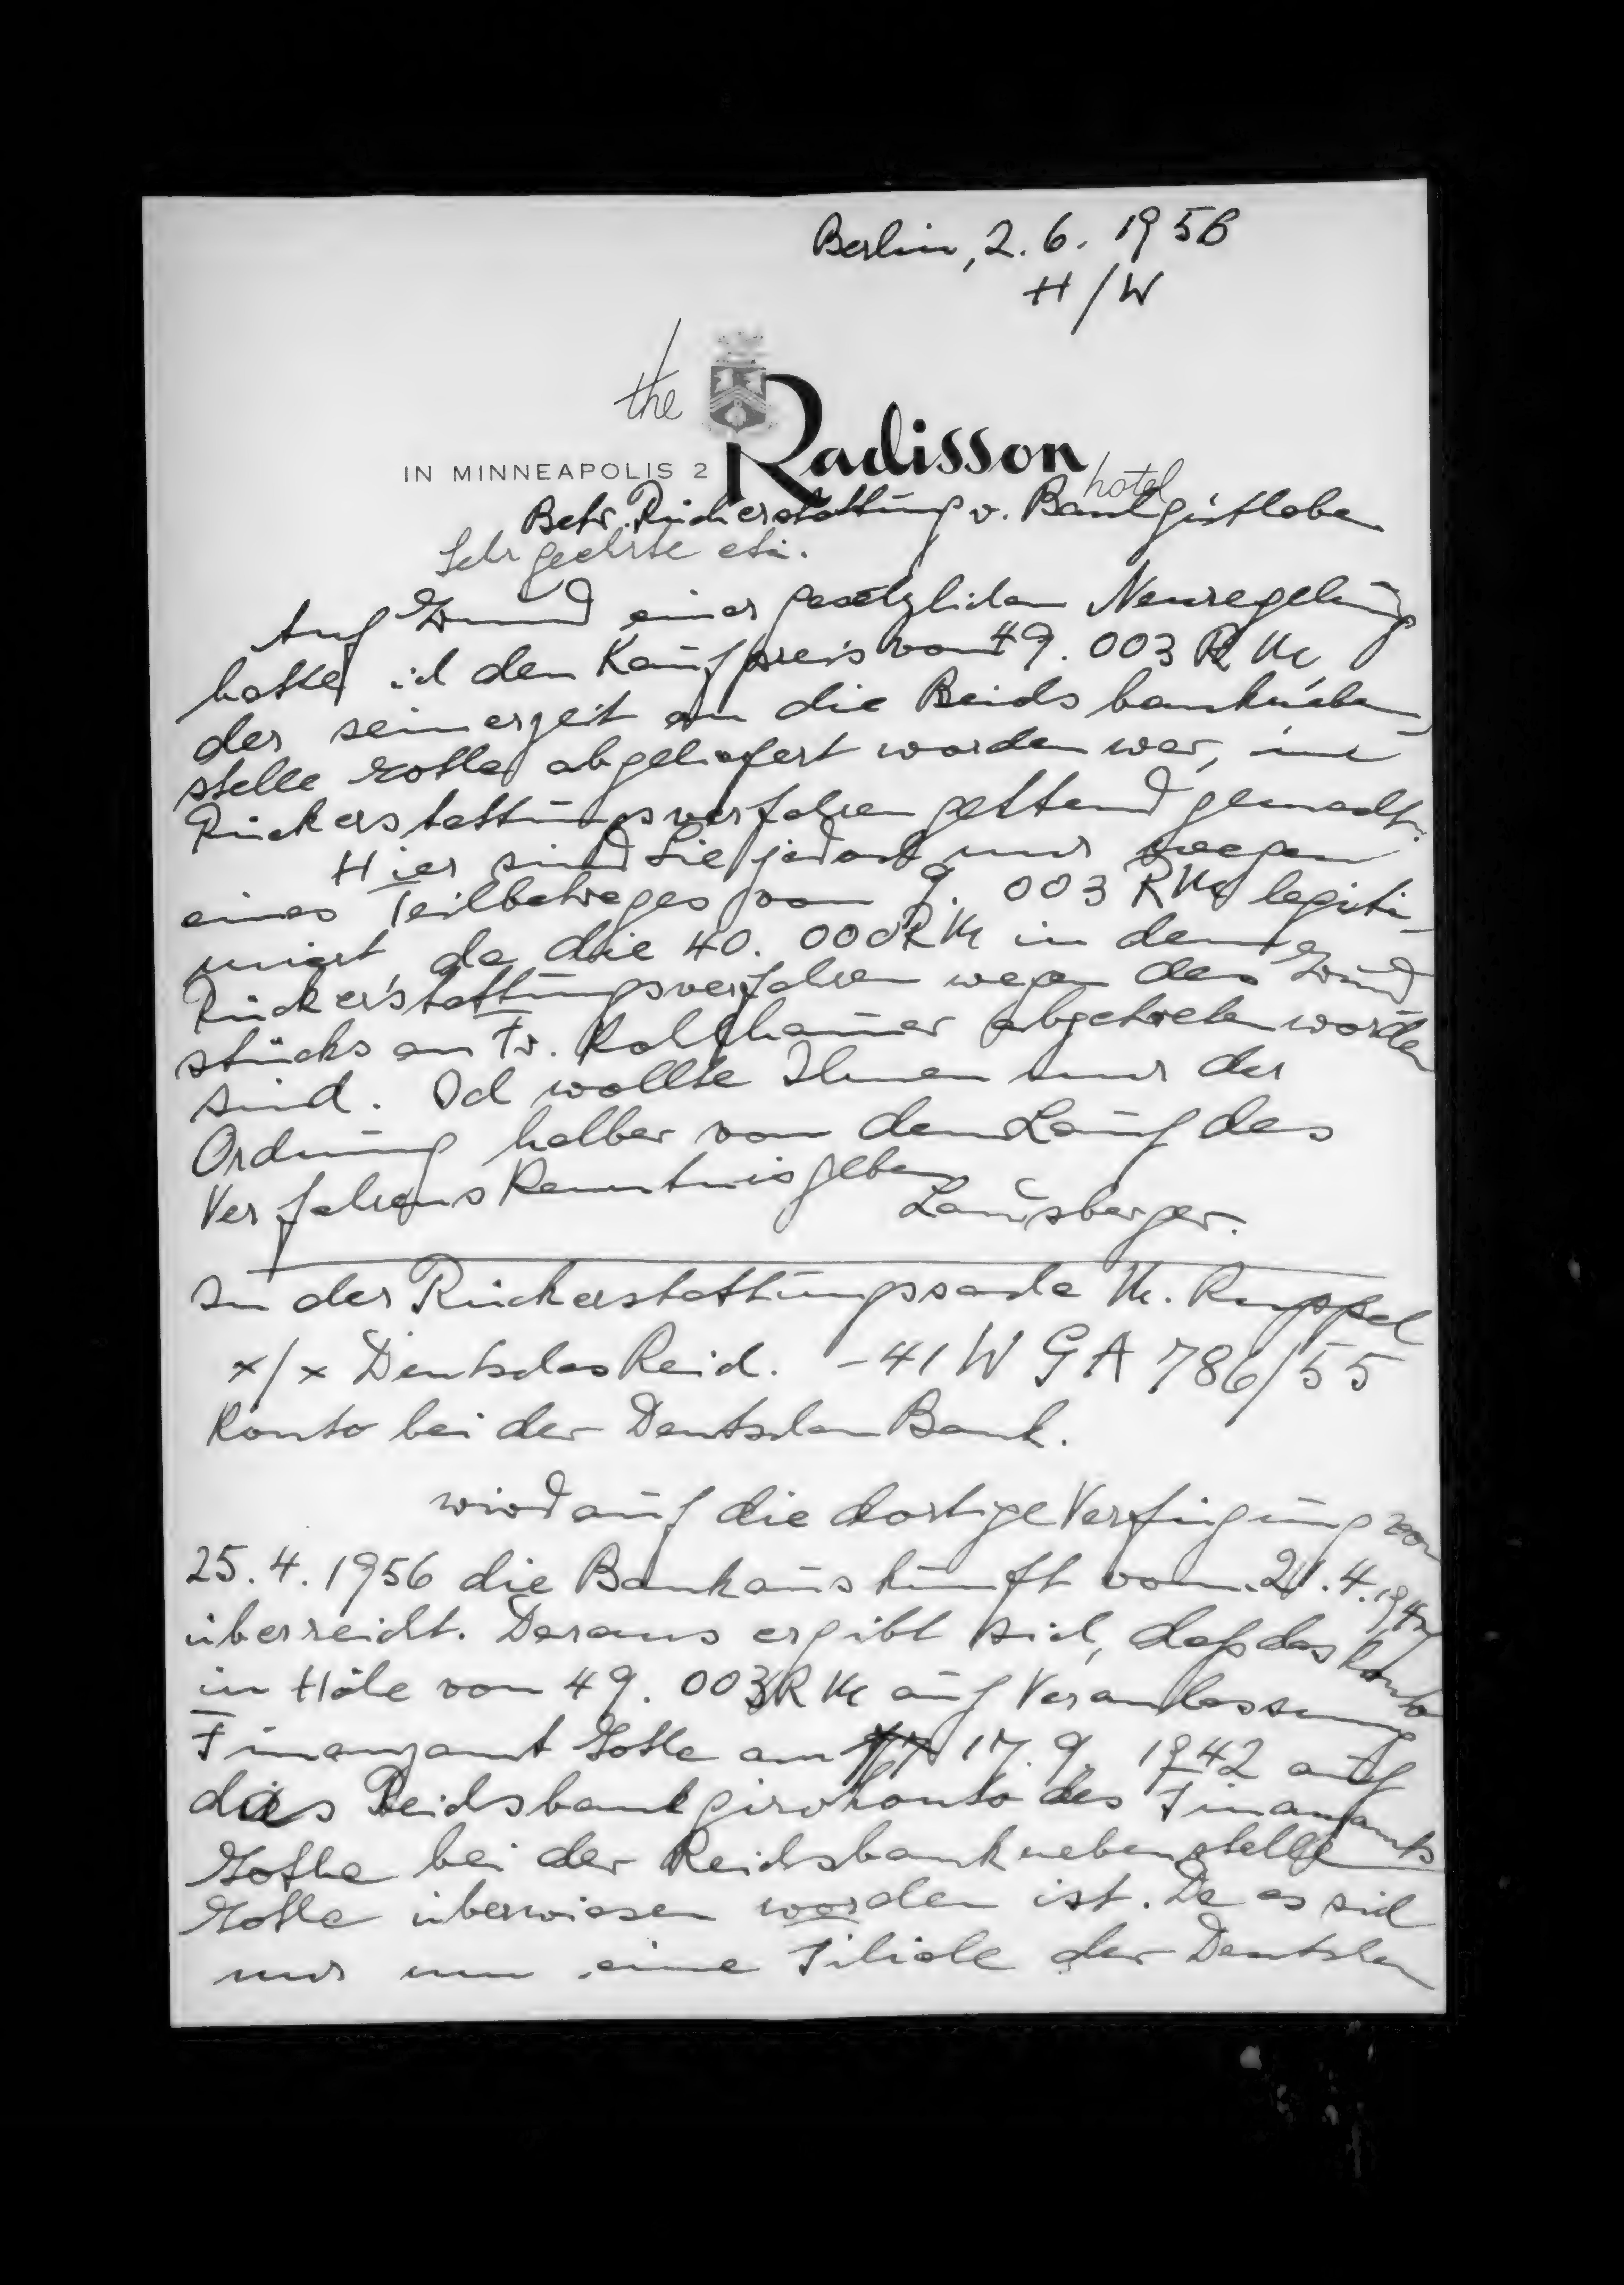 Berlin, 2. 6. 1956
H/W
the Radisson hotel
IN MINNEAPOLIS 2
Betr. Rückerstattung v. Bankguthaben
Sehr geehrte etc.
Auf Grund einer gesetzlichen Neuregelung
hatte ich den Kaufpreis von 49.003 RM,
der seinerzeit an die Reichsbankneben
stelle Gotha abgeliefert worden war, im
Rückerstattungsverfahren geltend gemacht.
Hier sind Sie jedoch nur wegen
eines Teilbetrages von 9.003 RM legiti-
miert, da die 40.000 RM in dem
Rückerstattungsverfahren wegen des Grund
stücks an Fr. abgetreten worden
sind. Ich wollte Ihnen nur der
Ordnung halber von dem Lauf des
Verfahrens Kenntnis geben
Landsberger.
In der Rückerstattungssache M. Ruppel
x/x Deutsches Reich. - 41 W G A 786/55
Konto bei der Deutschen Bank.
wird auf die dortige Verfügung von
25.4.1956 die Bankauskunft vom 21.4.
überreicht. Daraus ergibt sich, daß das Konto
in Höhe von 49.003 RM auf Veranlassung
Finanzamt Gotha am 17.9. 1942 auf
das Reichsbankgirokonto des Finanzamts
Gotha bei der Reichsbanknebenstelle
Gotha überwiesen worden ist. Da es sich
nur um eine Filiale der Deutschen